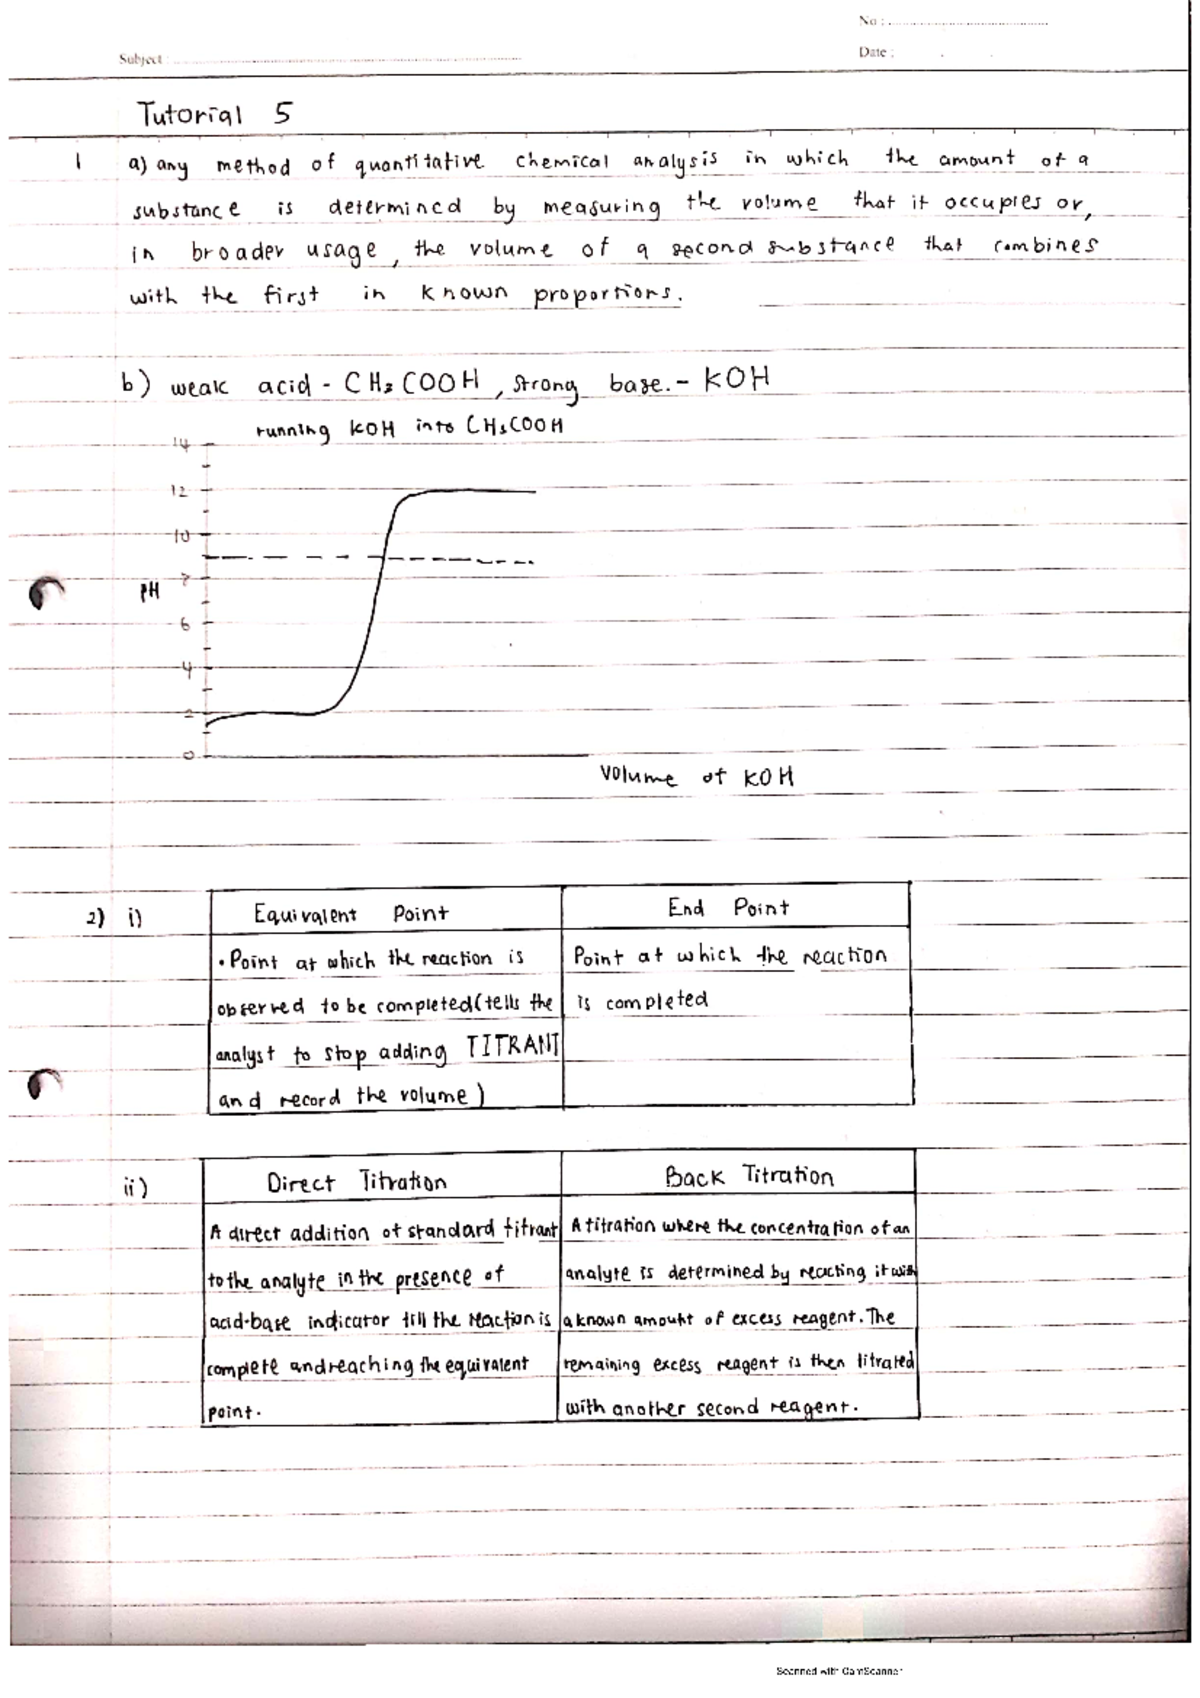 No :
Subject :
Date :
Tutorial 5
1 a) any method of quantitative chemical analysis in which the amount of a
substance is determined by measuring the volume that it occupies or,
in broader usage, the volume of a second substance that combines
with the first in known proportions.
b) weak acid - CH₃COOH, strong base. - KOH
running KOH into CH₃COOH
14
12
10
PH 7
6
4
2
0
Volume of KOH
2) i) Equivalent Point End Point
• Point at which the reaction is Point at which the reaction
observed to be completed (tells the is completed
analyst to stop adding TITRANT
and record the volume)
ii) Direct Titration Back Titration
A direct addition of standard titrant A titration where the concentration of an
to the analyte in the presence of analyte is determined by reacting it with
acid-base indicator till the reaction is a known amount of excess reagent. The
complete and reaching the equivalent remaining excess reagent is then titrated
point. with another second reagent.
Scanned with CamScanner